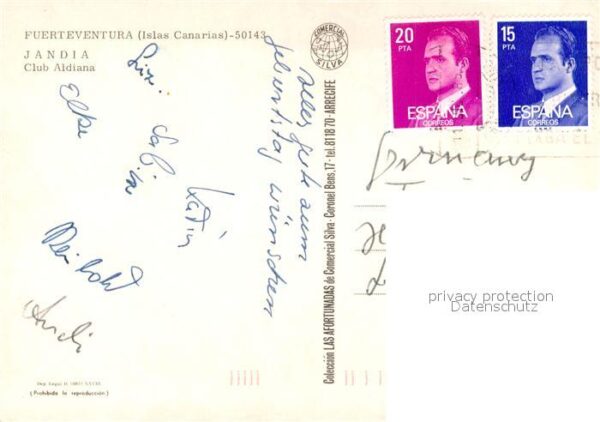 FUERTEVENTURA (Islas Canarias)-50143
JANDIA
Club Aldiana
COMERCIAL
SILVA
20
PTA
ESPAÑA
CORREOS
15
PTA
ESPAÑA
CORREOS
Alles Gute zum
Geburtstag wünschen
Elke
Sabine
Katrin
Reinhold
Germany
Colección LAS AFORTUNADAS de Comercial Silva - Coronel Bens, 17 - tel. 81 18 70 - ARRECIFE
privacy protection
Datenschutz
(Prohibida la reproducción)